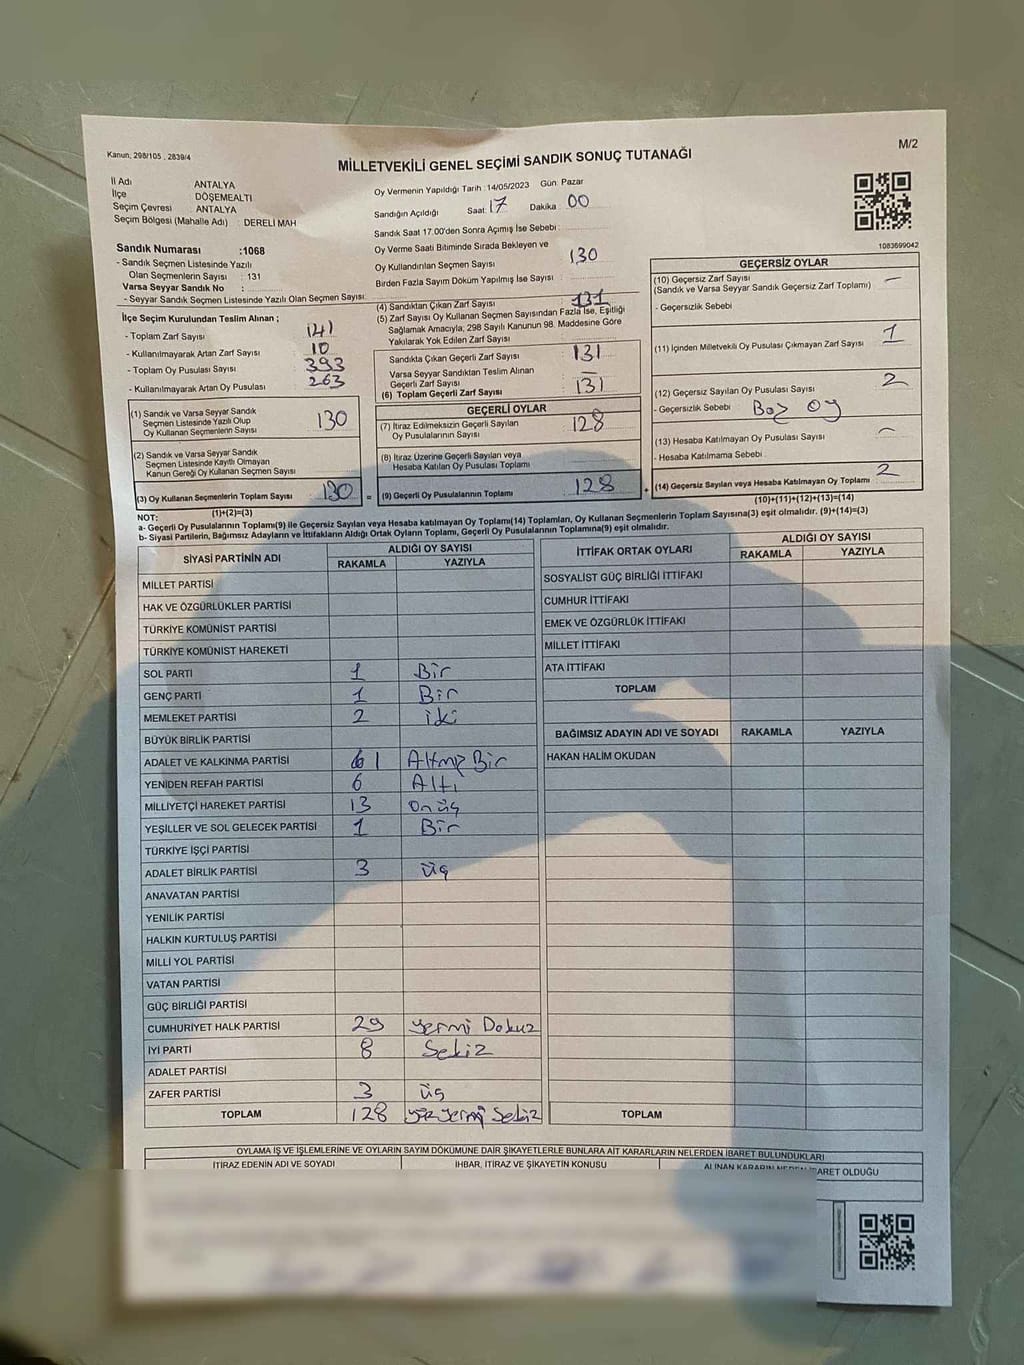 Kanun; 298/105 , 2839/4
M/2
MİLLETVEKİLİ GENEL SEÇİMİ SANDIK SONUÇ TUTANAĞI
İl Adı ANTALYA
İlçe DÖŞEMEALTI
Seçim Çevresi ANTALYA
Seçim Bölgesi (Mahalle Adı) : DERELİ MAH
Sandık Numarası :1068
- Sandık Seçmen Listesinde Yazılı
Olan Seçmenlerin Sayısı : 131
Varsa Seyyar Sandık No :
- Seyyar Sandık Seçmen Listesinde Yazılı Olan Seçmen Sayısı
Oy Vermenin Yapıldığı Tarih :14/05/2023 Gün: Pazar
Sandığın Açıldığı Saat: 17 Dakika 00
Sandık Saat 17.00'den Sonra Açımış İse Sebebi :
Oy Verme Saati Bitiminde Sırada Bekleyen ve
Oy Kullandırılan Seçmen Sayısı 130
Birden Fazla Sayım Döküm Yapılmış İse Sayısı :
1083699042
İlçe Seçim Kurulundan Teslim Alınan ;
- Toplam Zarf Sayısı 141
- Kullanılmayarak Artan Zarf Sayısı 10
- Toplam Oy Pusulası Sayısı 393
- Kullanılmayarak Artan Oy Pusulası 263
(1) Sandık ve Varsa Seyyar Sandık
Seçmen Listesinde Yazılı Olup
Oy Kullanan Seçmenlerin Sayısı 130
(2) Sandık ve Varsa Seyyar Sandık
Seçmen Listesinde Kayıtlı Olmayan
Kanun Gereği Oy Kullanan Seçmen Sayısı
(3) Oy Kullanan Seçmenlerin Toplam Sayısı 130 =
(1)+(2)=(3)
(4) Sandıktan Çıkan Zarf Sayısı 131
(5) Zarf Sayısı Oy Kullanan Seçmen Sayısından Fazla İse, Eşitliği
Sağlamak Amacıyla, 298 Sayılı Kanunun 98. Maddesine Göre
Yakılarak Yok Edilen Zarf Sayısı
Sandıkta Çıkan Geçerli Zarf Sayısı 131
Varsa Seyyar Sandıktan Teslim Alınan
Geçerli Zarf Sayısı –
(6) Toplam Geçerli Zarf Sayısı 131
GEÇERLİ OYLAR
(7) İtiraz Edilmeksizin Geçerli Sayılan
Oy Pusulalarının Sayısı 128
(8) İtiraz Üzerine Geçerli Sayılan veya
Hesaba Katılan Oy Pusulası Toplamı
(9) Geçerli Oy Pusulalarının Toplamı 128 +
GEÇERSİZ OYLAR
(10) Geçersiz Zarf Sayısı –
(Sandık ve Varsa Seyyar Sandık Geçersiz Zarf Toplamı)
- Geçersizlik Sebebi
(11) İçinden Milletvekili Oy Pusulası Çıkmayan Zarf Sayısı 1
(12) Geçersiz Sayılan Oy Pusulası Sayısı 2
- Geçersizlik Sebebi Boş oy
(13) Hesaba Katılmayan Oy Pusulası Sayısı –
- Hesaba Katılmama Sebebi
(14) Geçersiz Sayılan veya Hesaba Katılmayan Oy Toplamı 2
(10)+(11)+(12)+(13)=(14)
NOT:
a- Geçerli Oy Pusulalarının Toplamı(9) ile Geçersiz Sayılan veya Hesaba katılmayan Oy Toplamı(14) Toplamları, Oy Kullanan Seçmenlerin Toplam Sayısına(3) eşit olmalıdır. (9)+(14)=(3)
b- Siyasi Partilerin, Bağımsız Adayların ve İttifakların Aldığı Ortak Oyların Toplamı, Geçerli Oy Pusulalarının Toplamına(9) eşit olmalıdır.
SİYASİ PARTİNİN ADI ALDIĞI OY SAYISI
RAKAMLA YAZIYLA
MİLLET PARTİSİ
HAK VE ÖZGÜRLÜKLER PARTİSİ
TÜRKİYE KOMÜNİST PARTİSİ
TÜRKİYE KOMÜNİST HAREKETİ
SOL PARTİ 1 Bir
GENÇ PARTİ 1 Bir
MEMLEKET PARTİSİ 2 iki
BÜYÜK BİRLİK PARTİSİ
ADALET VE KALKINMA PARTİSİ 61 Altmış Bir
YENİDEN REFAH PARTİSİ 6 Altı
MİLLİYETÇİ HAREKET PARTİSİ 13 on üç
YEŞİLLER VE SOL GELECEK PARTİSİ 1 Bir
TÜRKİYE İŞÇİ PARTİSİ
ADALET BİRLİK PARTİSİ 3 üç
ANAVATAN PARTİSİ
YENİLİK PARTİSİ
HALKIN KURTULUŞ PARTİSİ
MİLLİ YOL PARTİSİ
VATAN PARTİSİ
GÜÇ BİRLİĞİ PARTİSİ
CUMHURİYET HALK PARTİSİ 29 yermi Dokuz
İYİ PARTİ 8 Sekiz
ADALET PARTİSİ
ZAFER PARTİSİ 3 üç
TOPLAM 128 yüzyermi Sekiz
İTTİFAK ORTAK OYLARI ALDIĞI OY SAYISI
RAKAMLA YAZIYLA
SOSYALİST GÜÇ BİRLİĞİ İTTİFAKI
CUMHUR İTTİFAKI
EMEK VE ÖZGÜRLÜK İTTİFAKI
MİLLET İTTİFAKI
ATA İTTİFAKI
TOPLAM
BAĞIMSIZ ADAYIN ADI VE SOYADI RAKAMLA YAZIYLA
HAKAN HALİM OKUDAN
TOPLAM
OYLAMA İŞ VE İŞLEMLERİNE VE OYLARIN SAYIM DÖKÜMÜNE DAİR ŞİKAYETLERLE BUNLARA AİT KARARLARIN NELERDEN İBARET BULUNDUKLARI
İTİRAZ EDENİN ADI VE SOYADI İHBAR, İTİRAZ VE ŞİKAYETİN KONUSU ALINAN KARARIN NEDEN İBARET OLDUĞU